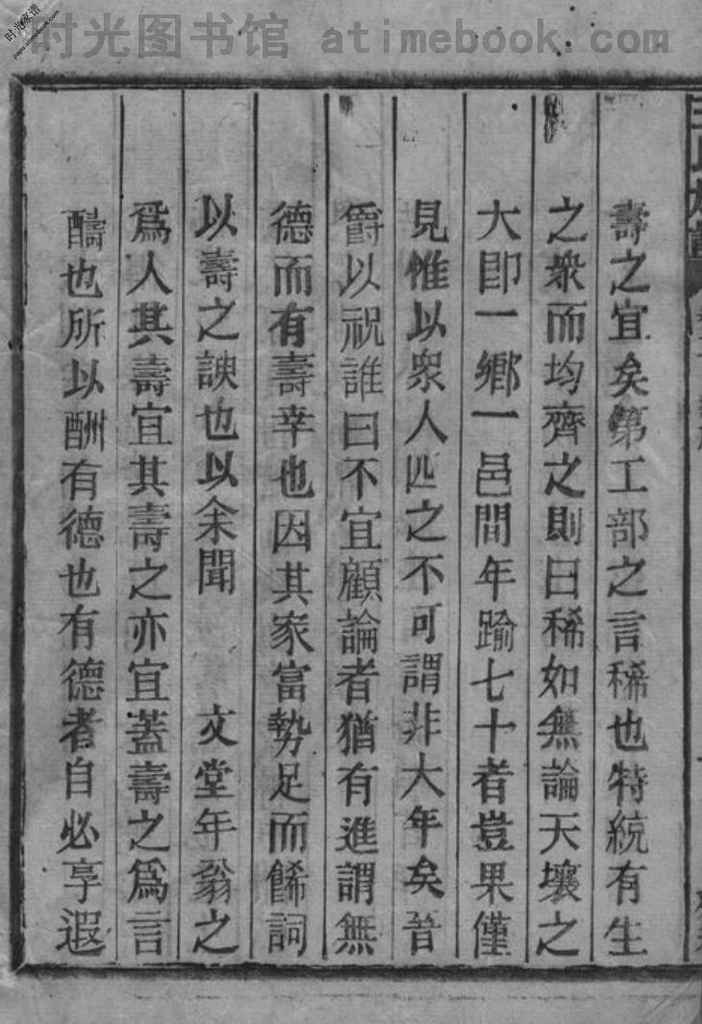 时光图书馆 atimebook.com
时光家谱
壽之宜矣第工部之言稀也特統有生
之衆而均齊之則曰稀如無論天壤之
大卽一鄉一邑間年踰七十者豈果僅
見惟以衆人匹之不可謂非大年矣昔
爵以祝誰曰不宜顧論者猶有進謂無
德而有壽幸也因其家富勢足而餙詞
以壽之諛也以余聞 文堂年翁之
爲人其壽宜其壽之亦宜蓋壽之爲言
醻也所以酬有德也有德者自必享遐